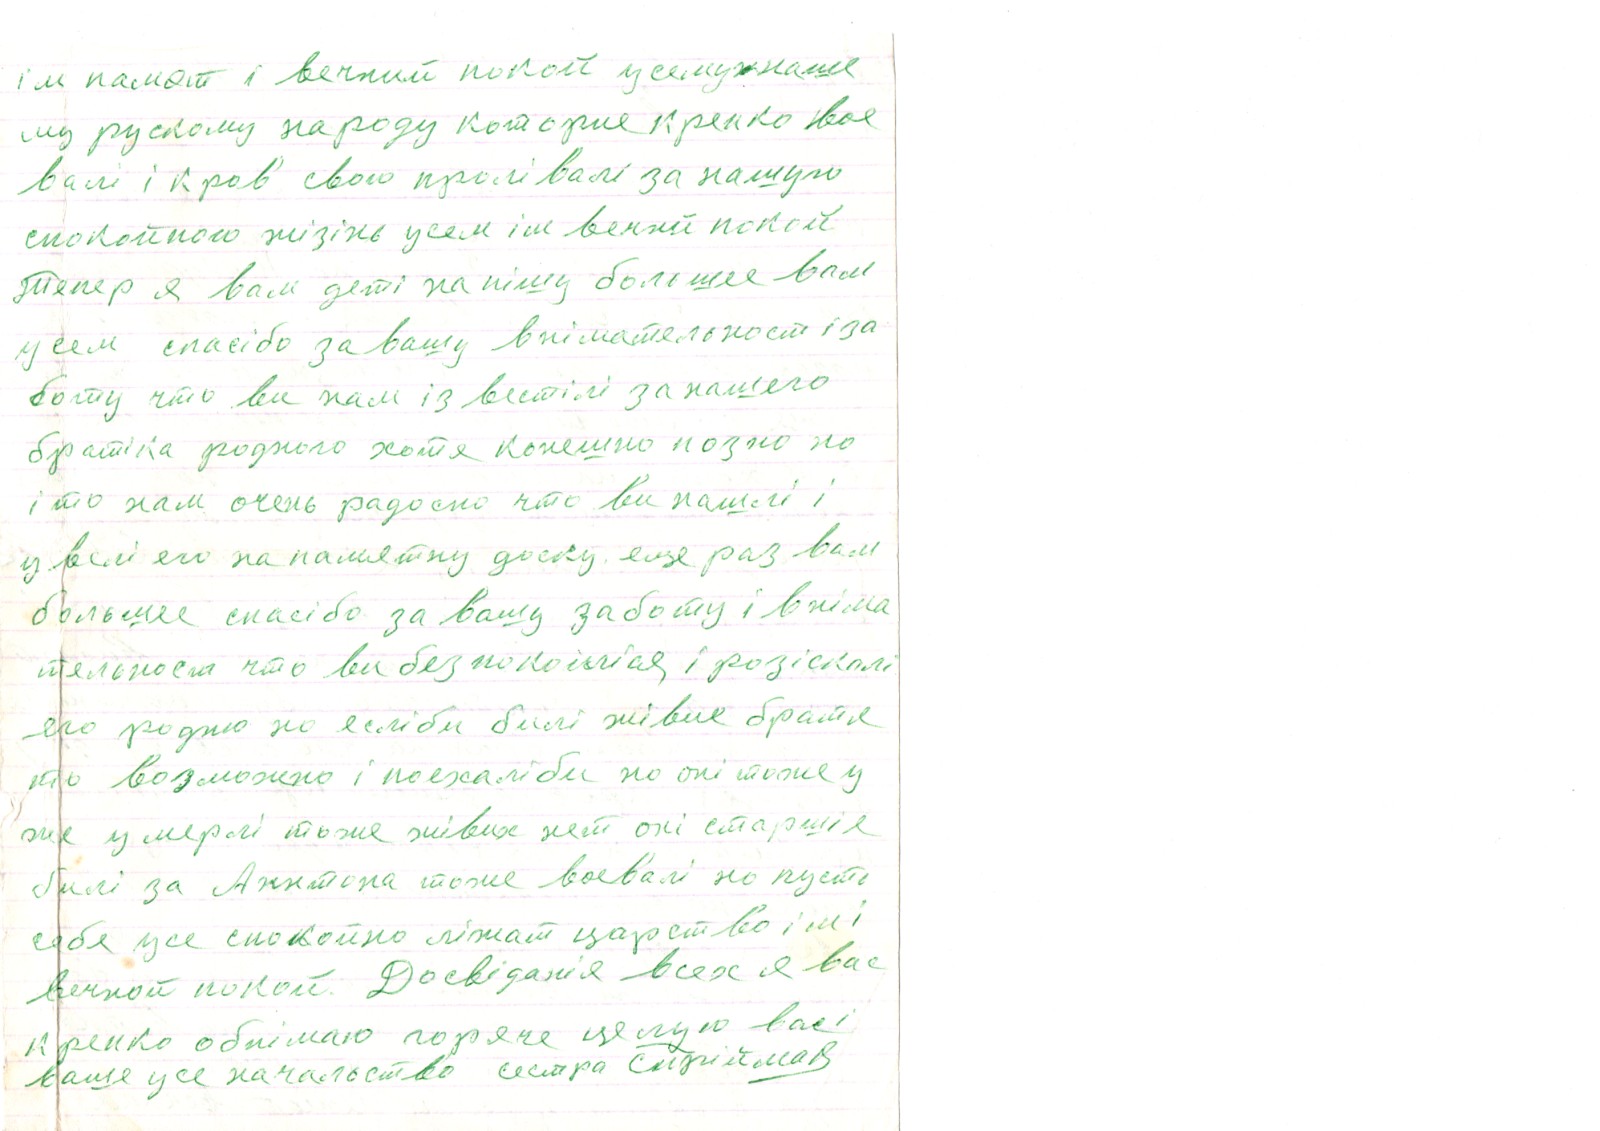 ім памят і вечний покой усему наше
му рускому народу которие крепко вое
валі і кров свою пролівалі за нашую
спокойною жізінь усем їм вечний покой
Тепер я вам деті напішу большее вам
усем спасібо за вашу внімательност і за
боту что ви нам ізвестілі за нашего
братіка родного хотя конешно позно но
і то нам очень радосно что ви нашлі і
увелі его на памятну доску. еще раз вам
большее спасібо за вашу заботу і вніма
тельност что ви безпокоїлісь і розіскалі
его родню но еслі би билі живие братя
то возможно і поехалі би но оні тоже у
же умерлі тоже жівих нет оні старшіе
билі за Анкнтона тоже воевалі но пусть
себе усе спокойно ліжат царство ім і
вечной покой. Досвіданія всех я вас
крепко обнімаю горяче целую вас і
ваше усе начальство сестра